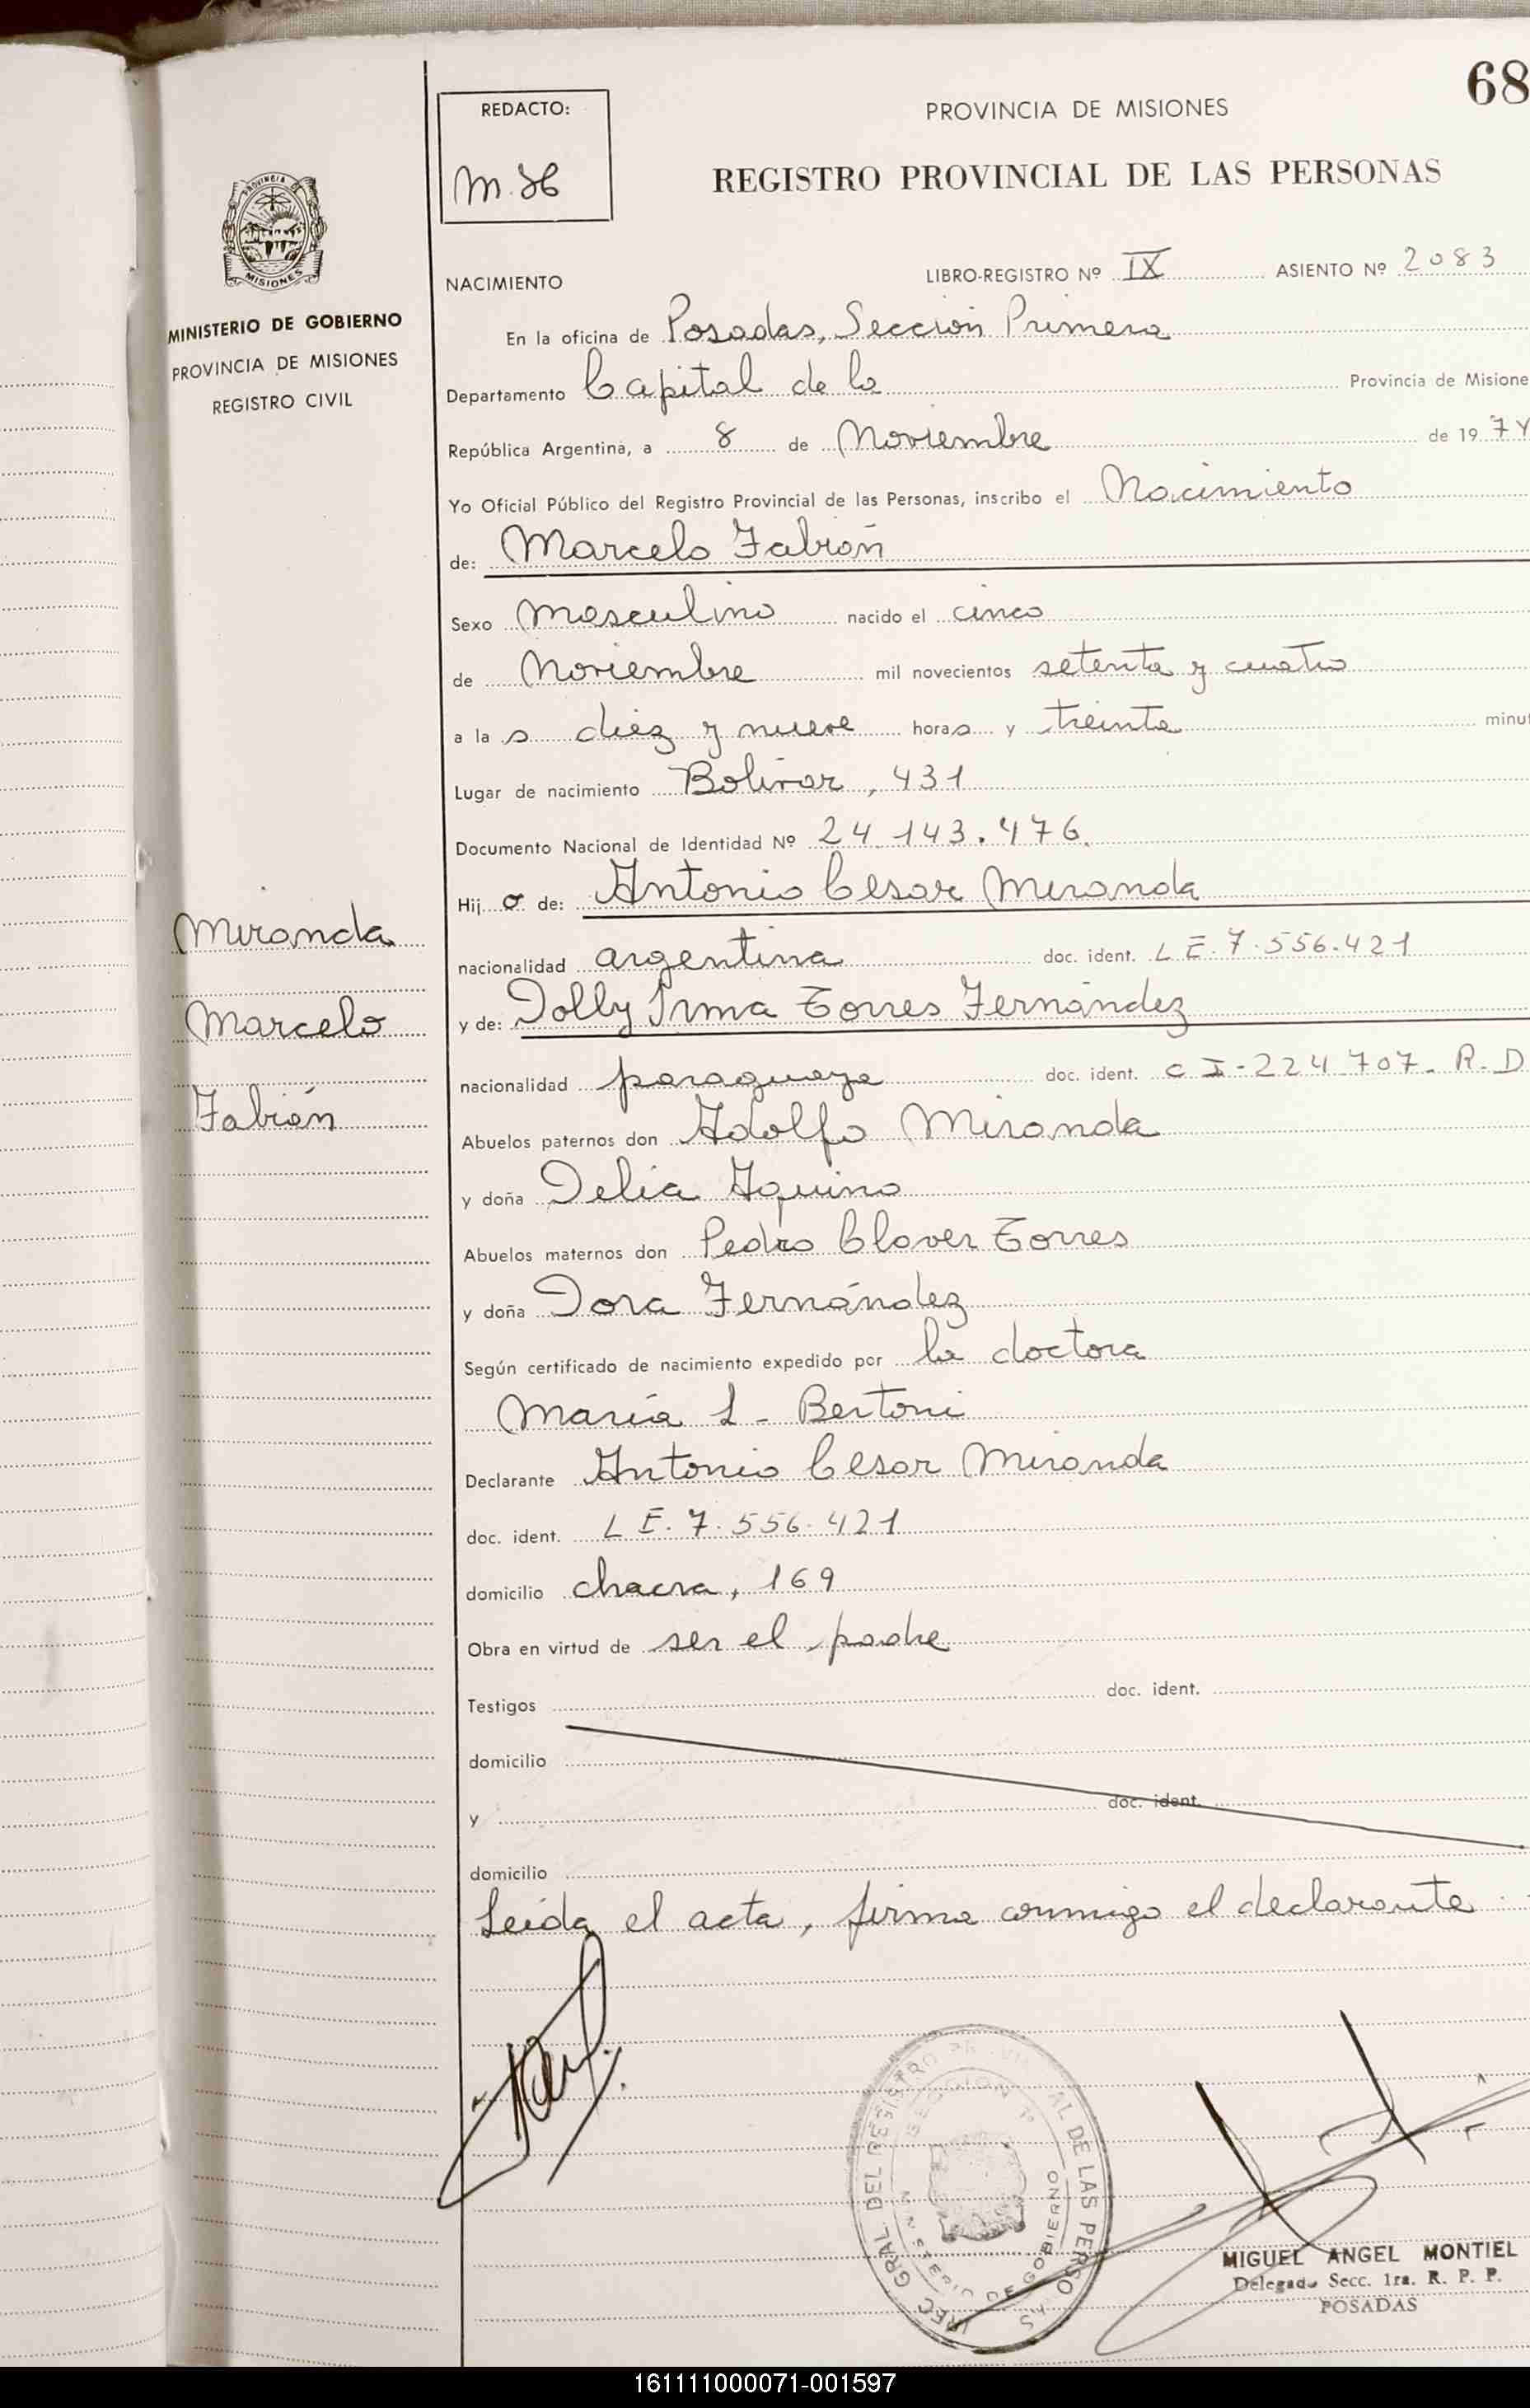 68
REDACTO:
M.
PROVINCIA DE MISIONES
REGISTRO PROVINCIAL DE LAS PERSONAS
PROVINCIA DE
MISIONES
MINISTERIO DE GOBIERNO
PROVINCIA DE MISIONES
REGISTRO CIVIL
NACIMIENTO LIBRO-REGISTRO Nº IX ASIENTO Nº 2083
En la oficina de Posadas, Sección Primera
Departamento Capital de la Provincia de Misione
República Argentina, a 8 de Noviembre de 1974
Yo Oficial Público del Registro Provincial de las Personas, inscribo el Nacimiento
de: Marcelo Fabián
Sexo Masculino nacido el cinco
de Noviembre mil novecientos setenta y cuatro
a la s diez y nueve hora s y treinta minut
Lugar de nacimiento Bolivar, 431
Documento Nacional de Identidad Nº 24.143.476.
Hij o de: Antonio Cesar Miranda
nacionalidad argentina doc. ident. L E. 7.556.421
y de: Dolly Irma Torres Fernández
nacionalidad paraguaya doc. ident. C I-224.707- R.D
Abuelos paternos don Adolfo Miranda
y doña Delia Aquino
Abuelos maternos don Pedro Claver Torres
y doña Dora Fernández
Según certificado de nacimiento expedido por la doctora
María L- Bertoni
Declarante Antonio Cesar Miranda
doc. ident. L E. 7.556.421
domicilio chacra, 169
Obra en virtud de ser el padre
Testigos doc. ident.
domicilio
y doc. ident.
domicilio
Leída el acta, firma conmigo el declarante.
Miranda
Marcelo
Fabián
GRAL DEL REGISTRO PROVINCIAL DE LAS PERSONAS
SECCION 1ª
MINISTERIO DE GOBIERNO
MIGUEL ANGEL MONTIEL
Delegado Secc. 1ra. R. P. P.
POSADAS
161111000071-001597